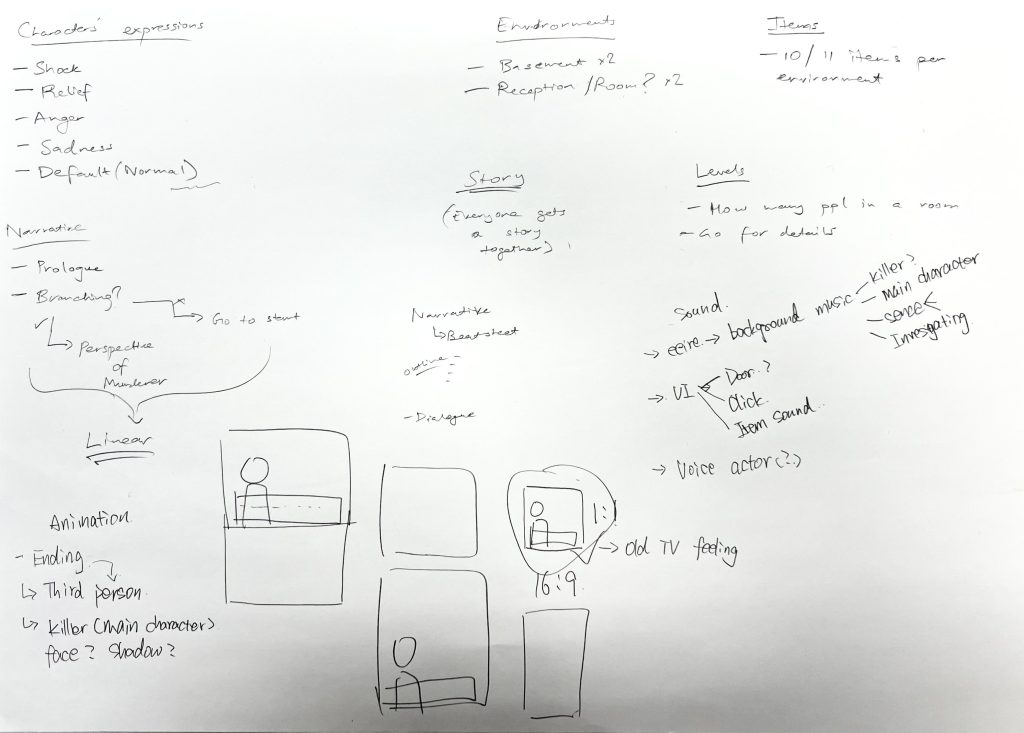 Characters' expressions
- Shock
- Relief
- Anger
- Sadness
- Default (Normal)
Environments
- Basement x2
- Reception /Room? x2
Items
- 10/11 items per
environment
Story
(Everyone gets
a story
together)
Levels
- How many ppl in a room
- Go for details
Narrative
- Prologue
- Branching?
Go to start
Perspective
of
Murderer
Linear
Narrative
Beatsheet
outline
- Dialogue
sound.
→ eeire → background music
killer?
main character
Invesgating
→ UI
Door..?
Click.
Item sound..
→ Voice actor(?)
Animation
- Ending
Third person.
Killer (main character)
face? Shadow?
1:1
→ Old TV feeling
16:9